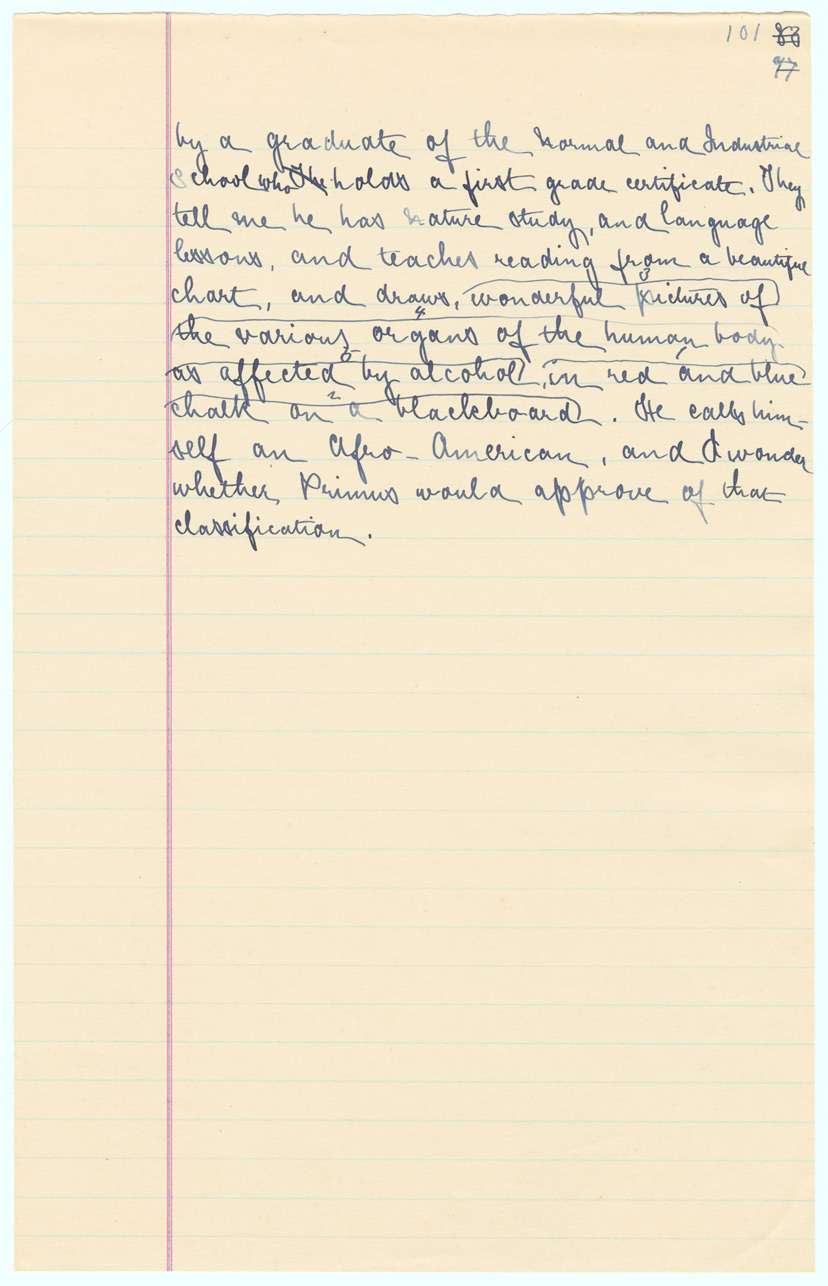 101 83
77
by a graduate of the Normal and Industrial
School who He holds a first grade certificate. They
tell me he has nature study, and language
lessons, and teaches reading from a beautiful
chart, and draws, wonderful pictures of
3
4
the various organs of the human body
5 1
as affected by alcohol, in red and blue
2
chalk on a blackboard. He calls him-
self an Afro-American, and I wonder
whether Primus would approve of that
classification.